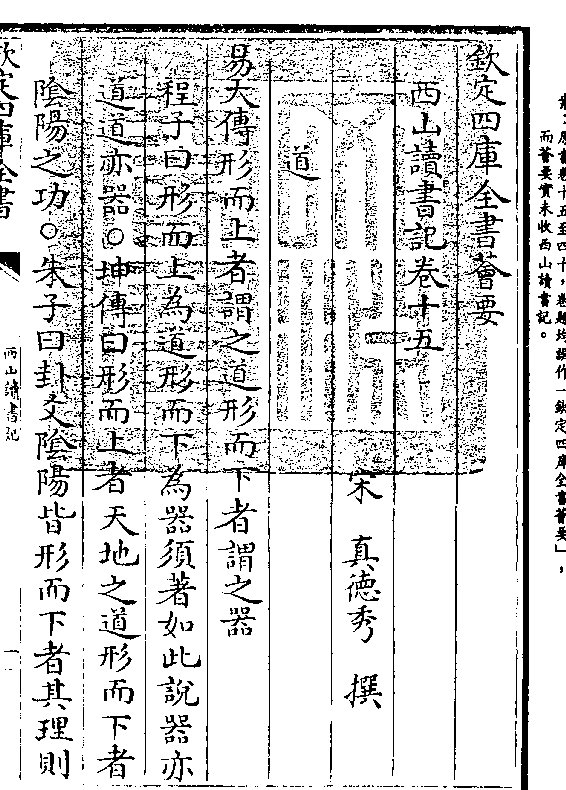 欽定四庫全書薈要
西山讀書記卷十五
宋 真德秀 撰
道
易大傳形而上者謂之道形而下者謂之器
程子曰形而上為道形而下為器須著如此說器亦
道道亦器○坤傳曰形而上者天地之道形而下者
陰陽之功○朱子曰卦爻陰陽皆形而下者其理則
欽定四庫全書
西山讀書記
一
原書卷十五至四十，卷題均誤作「欽定四庫全書薈要」，
而薈要實未收西山讀書記。